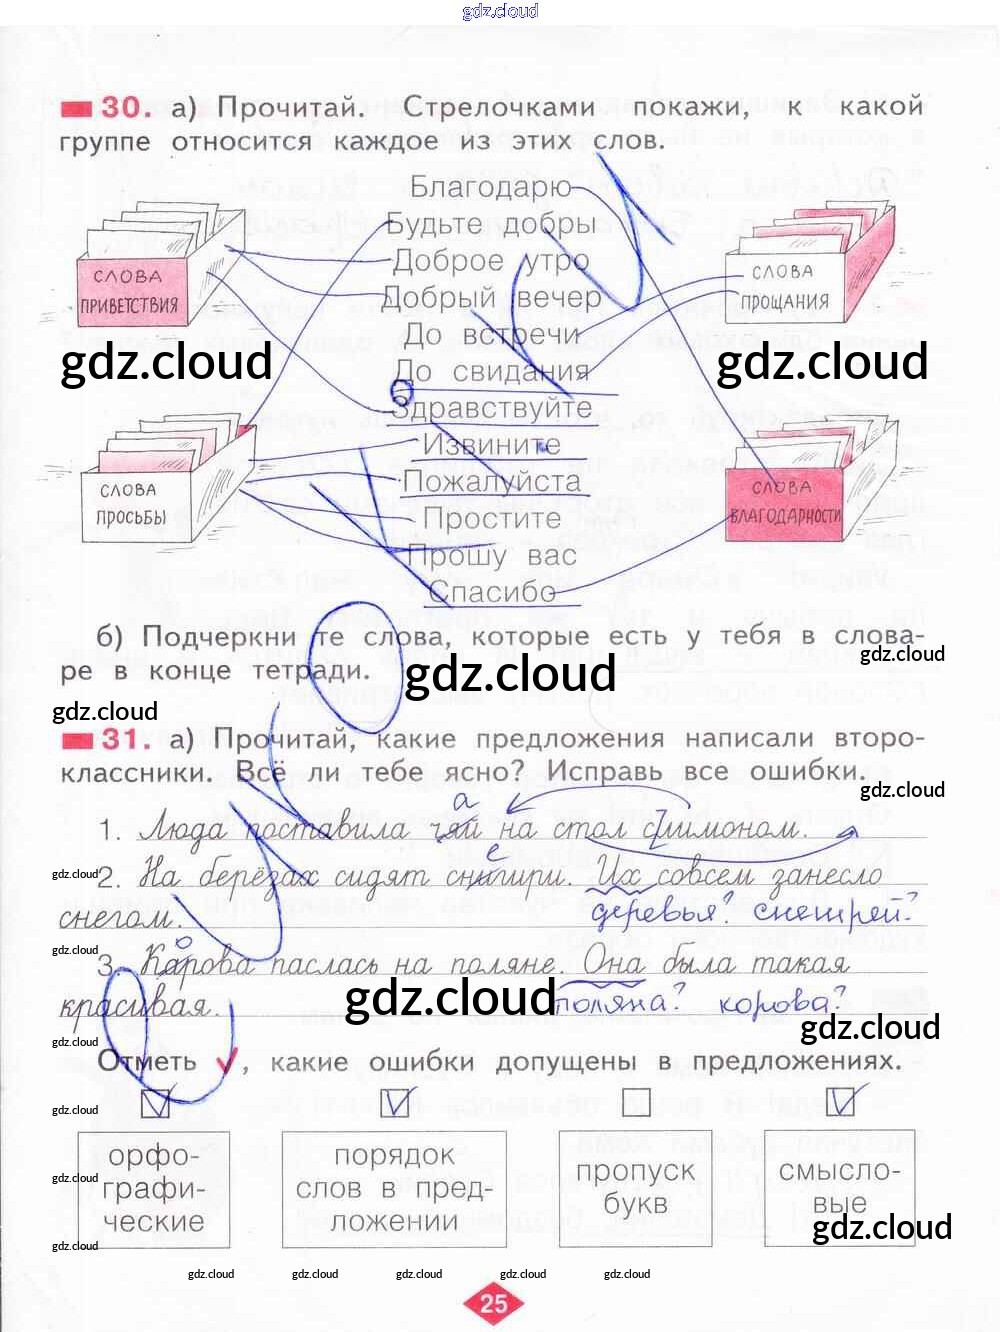 gdz.cloud
30. а) Прочитай. Стрелочками покажи, к какой
группе относится каждое из этих слов.
Благодарю
Будьте добры
Доброе утро
Добрый вечер
До встречи
До свидания
Здравствуйте
Извините
Пожалуйста
Простите
Прошу вас
Спасибо
СЛОВА
ПРИВЕТСТВИЯ
СЛОВА
ПРОЩАНИЯ
gdz.cloud
gdz.cloud
СЛОВА
ПРОСЬБЫ
СЛОВА
БЛАГОДАРНОСТИ
б) Подчеркни те слова, которые есть у тебя в слова-
ре в конце тетради.
gdz.cloud
gdz.cloud
gdz.cloud
31. а) Прочитай, какие предложения написали второ-
классники. Всё ли тебе ясно? Исправь все ошибки.
gdz.cloud
а
1. Люда поставила чяй на стол с лимоном.
е
gdz.cloud
2. На берёзах сидят снигири. Их совсем занесло
gdz.cloud
снегом.
деревья? снегирей?
о
gdz.cloud
3. Карова паслась на поляне. Она была такая
gdz.cloud
красивая.
gdz.cloud
поляна? корова?
gdz.cloud
gdz.cloud
Отметь ✓, какие ошибки допущены в предложениях.
gdz.cloud
орфо-
графи-
ческие
порядок
слов в пред-
ложении
пропуск
букв
смысло-
вые
gdz.cloud
gdz.cloud
gdz.cloud
gdz.cloud gdz.cloud gdz.cloud gdz.cloud gdz.cloud
25